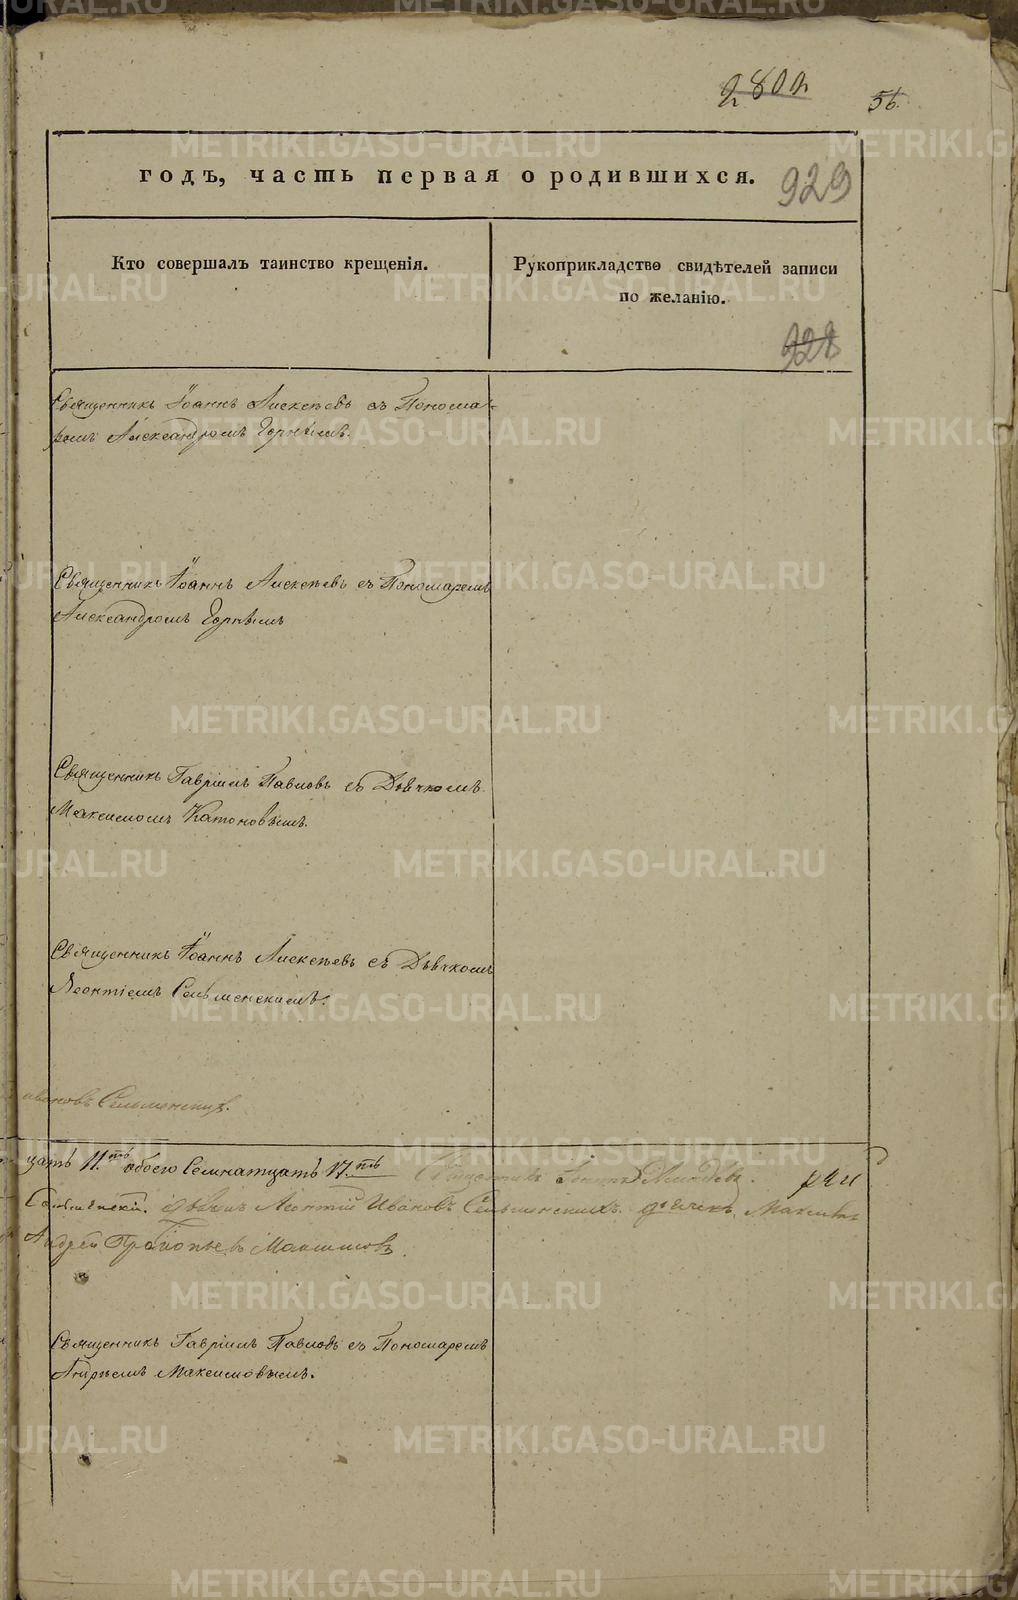 280 н
56.
годъ, часть первая о родившихся.
929
Кто совершалъ таинство крещенія.
Рукоприкладство свидѣтелей записи
по желанію.
928
Священникъ Іоаннъ Алексѣевъ съ Понома-
ремъ Александромъ Горнымъ.
Священникъ Іоаннъ Алексѣевъ съ Пономаремъ
Александромъ Горнымъ
Священникъ Гавріилъ Павловъ съ Дьячкомъ
Максимомъ Катоновымъ.
Священникъ Іоаннъ Алексѣевъ съ Дьячкомъ
Леонтіемъ Сельменскимъ.
ивановъ Сельменскихъ.
цать 11.ть обоего Семнатцать 17.ть Священникъ Іоаннъ
Леонтій Ивановъ Сельменскихъ. дьячекъ Максимъ
Андрей Прокопьевъ Максимовъ.
Священникъ Гавріилъ Павловъ съ Пономаремъ
Андреемъ Максимовымъ.
METRIKI.GASO-URAL.RU